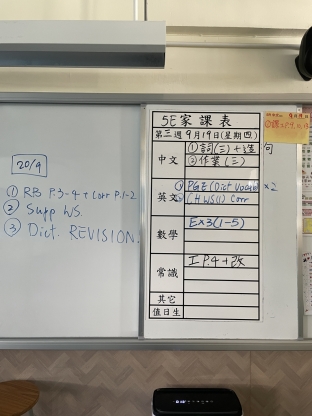 20/9
① RB P.3-4 + Corr P.1-2
② Supp WS.
③ Dict. REVISION.
5E家課表
第三週 9月19日(星期四)
中文
①詞(三)+造句
②作業(三)
英文
① PGE(Dict Vocab) ×2
② GHWS(1) Corr
數學
Ex3(1-5)
常識
工P.4+改
其它
值日生